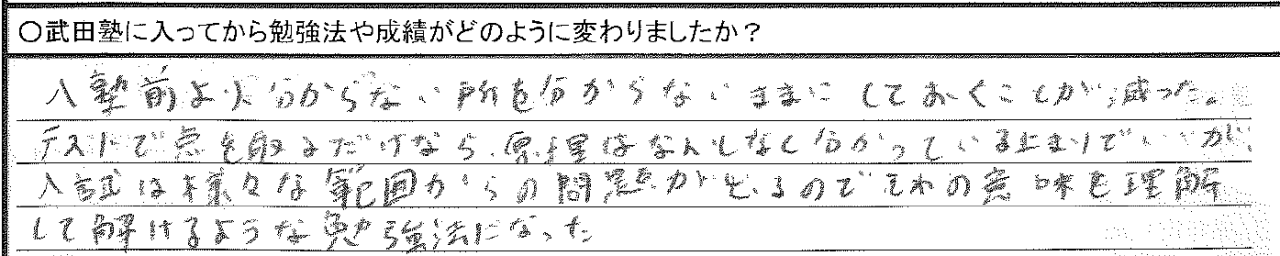 ○武田塾に入ってから勉強法や成績がどのように変わりましたか？
入塾前より分からない所を分からないままにしておくことが減った。
テストで点を取るだけなら、原理はなんとなく分かっている止まりでいいが、
入試は様々な範囲からの問題がでるのでそれの意味を理解
して解けるような勉強法になった